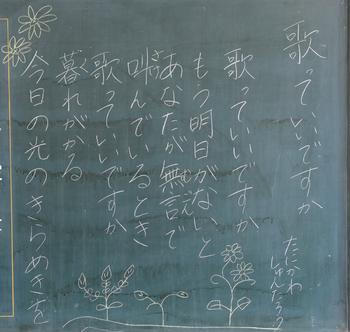 歌っていいですか
たにかわ
しゅんたろう
歌っていいですか
もう明日がないと
あなたが無言で
叫んでいるとき
歌っていいですか
暮れがかる
今日の光のきらめきを